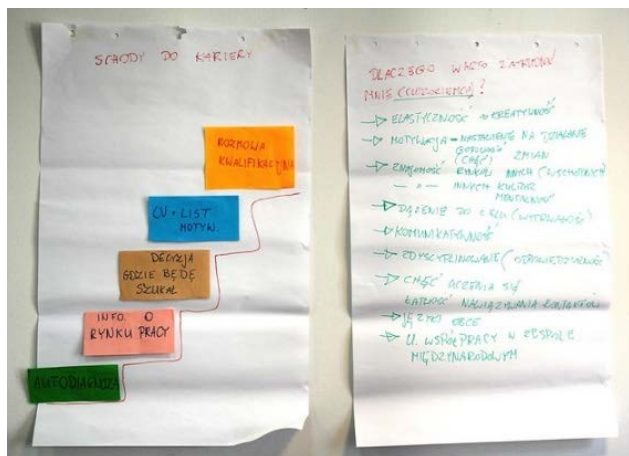 SCHODY DO KARIERY
ROZMOWA
KWALIFIKACYJNA
CV + LIST
MOTYW.
DECYZJA
GDZIE BĘDĘ
SZUKAŁ
INFO. O
RYNKU PRACY
AUTODIAGNOZA
DLACZEGO WARTO ZATRUDNIĆ
MNIE (CUDZOZIEMCA)?
→ ELASTYCZNOŚĆ + KREATYWNOŚĆ
→ MOTYWACJA – NASTAWIENIE NA DZIAŁANIE
GOTOWOŚĆ
(CHĘĆ) ZMIAN
→ ZNAJOMOŚĆ RYNKÓW INNYCH (WSCHODNICH)
— " — INNYCH KULTUR
MENTALNOŚĆ
→ DĄŻENIE DO CELU (WYTRWAŁOŚĆ)
→ KOMUNIKATYWNOŚĆ
→ ZDYSCYPLINOWANIE (ODPOWIEDZIALNOŚĆ)
→ CHĘĆ UCZENIA SIĘ
ŁATWOŚĆ NAWIĄZYWANIA KONTAKTÓW
→ JĘZYKI OBCE
→ U. WSPÓŁPRACY W ZESPOLE
MIĘDZYNARODOWYM